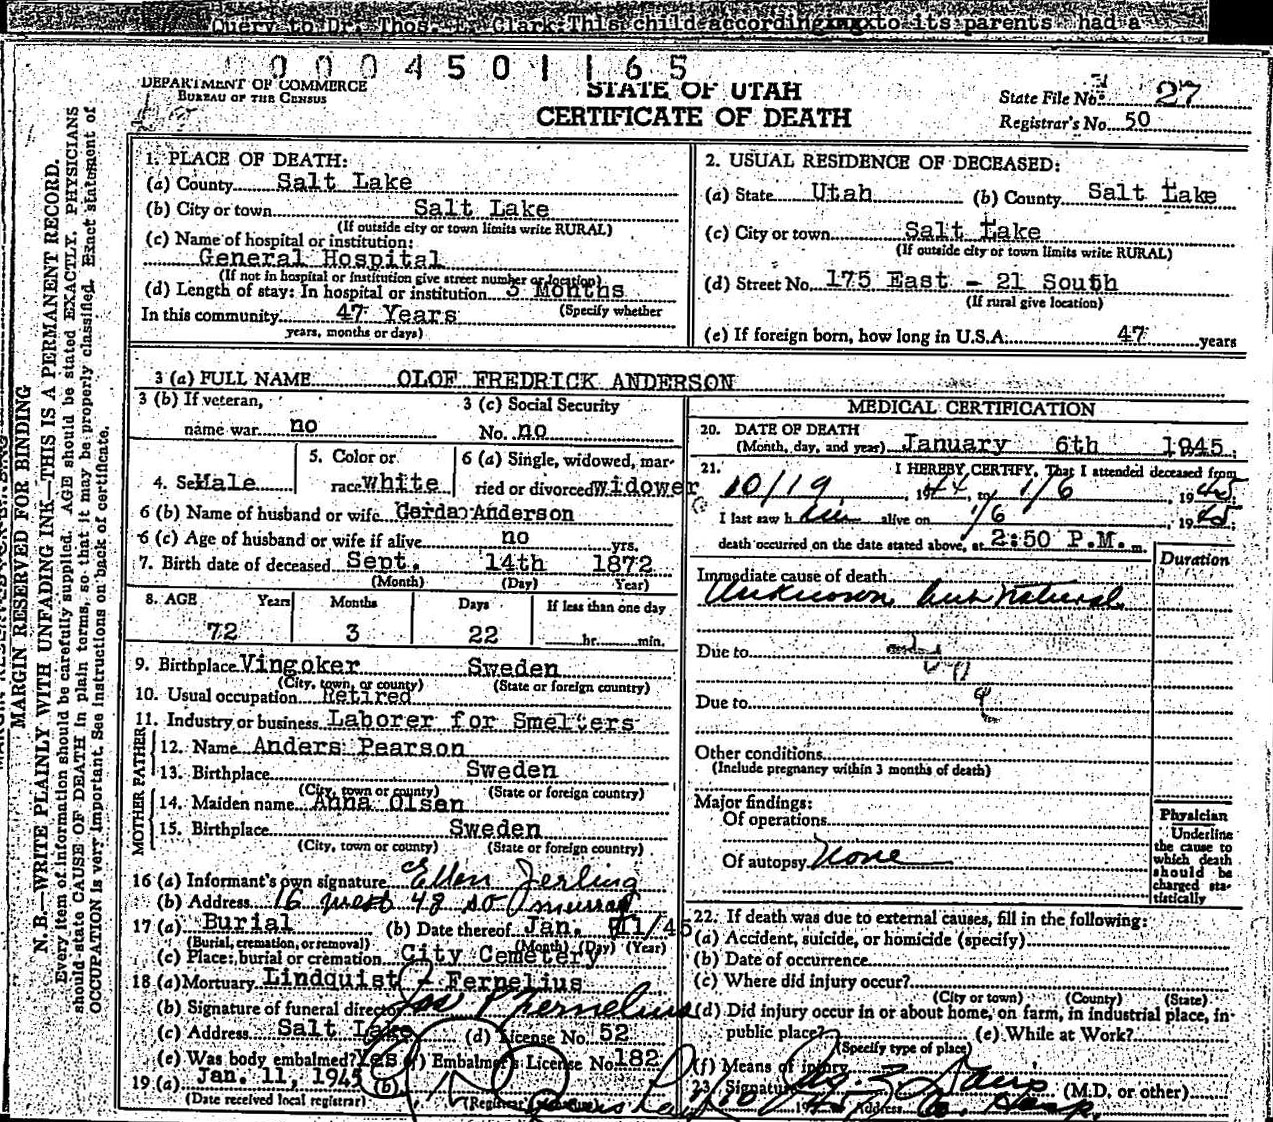 Query to Dr. Thos. F. Clark This child according to its parents had a
0004501165
DEPARTMENT OF COMMERCE
BUREAU OF THE CENSUS
STATE OF UTAH
CERTIFICATE OF DEATH
State File No. 27
Registrar's No. 50
MARGIN RESERVED FOR BINDING
N. B.—WRITE PLAINLY WITH UNFADING INK—THIS IS A PERMANENT RECORD.
Every item of information should be carefully supplied. AGE should be stated EXACTLY. PHYSICIANS
should state CAUSE OF DEATH in plain terms, so that it may be properly classified. Exact statement of
OCCUPATION is very important. See instructions on back of certificate.
1. PLACE OF DEATH:
(a) County Salt Lake
(b) City or town Salt Lake
(If outside city or town limits write RURAL)
(c) Name of hospital or institution:
General Hospital
(If not in hospital or institution give street number or location)
(d) Length of stay: In hospital or institution 3 Months
(Specify whether
In this community 47 Years
years, months or days)
2. USUAL RESIDENCE OF DECEASED:
(a) State Utah (b) County Salt Lake
(c) City or town Salt Lake
(If outside city or town limits write RURAL)
(d) Street No. 175 East - 21 South
(If rural give location)
(e) If foreign born, how long in U.S.A. 47 years
3 (a) FULL NAME OLOF FREDRICK ANDERSON
3 (b) If veteran,
name war no
3 (c) Social Security
No. no
4. Sex Male
5. Color or
race white
6 (a) Single, widowed, mar-
ried or divorced widower
6 (b) Name of husband or wife Gerda Anderson
6 (c) Age of husband or wife if alive no yrs.
7. Birth date of deceased Sept. 14th 1872
(Month) (Day) (Year)
8. AGE Years Months Days If less than one day
72 3 22 hr. min.
9. Birthplace Vingoker Sweden
(City, town, or county) (State or foreign country)
10. Usual occupation Retired
11. Industry or business Laborer for Smelters
FATHER
12. Name Anders Pearson
13. Birthplace Sweden
(City, town or county) (State or foreign country)
MOTHER
14. Maiden name Anna Olsen
15. Birthplace Sweden
(City, town or county) (State or foreign country)
16 (a) Informant's own signature Ellen Jerling
(b) Address 16 west 48 so Murray
17 (a) Burial (b) Date thereof Jan. 11/45
(Burial, cremation, or removal) (Month) (Day) (Year)
(c) Place: burial or cremation City Cemetery
18 (a) Mortuary Lindquist & Fernelius
(b) Signature of funeral director Jos P Fernelius
(c) Address Salt Lake (d) License No. 52
(e) Was body embalmed? Yes (f) Embalmer's License No. 182
19 (a) Jan. 11, 1945 (b)
(Date received local registrar)
MEDICAL CERTIFICATION
20. DATE OF DEATH
(Month, day, and year) January 6th 1945
21. I HEREBY CERTIFY, That I attended deceased from
10/19, 1944, to 1/6, 1945;
I last saw him alive on 1/6, 1945;
death occurred on the date stated above, at 2:50 P.M. m.
Duration
Immediate cause of death
Unknown but natural
Due to
Due to
Other conditions
(Include pregnancy within 3 months of death)
Major findings:
Of operations
Of autopsy None
Physician
Underline
the cause to
which death
should be
charged sta-
tistically
22. If death was due to external causes, fill in the following:
(a) Accident, suicide, or homicide (specify)
(b) Date of occurrence
(c) Where did injury occur?
(City or town) (County) (State)
(d) Did injury occur in or about home, on farm, in industrial place, in
public place? (e) While at Work?
(Specify type of place)
(f) Means of injury
23. Signature (M.D. or other)
Address